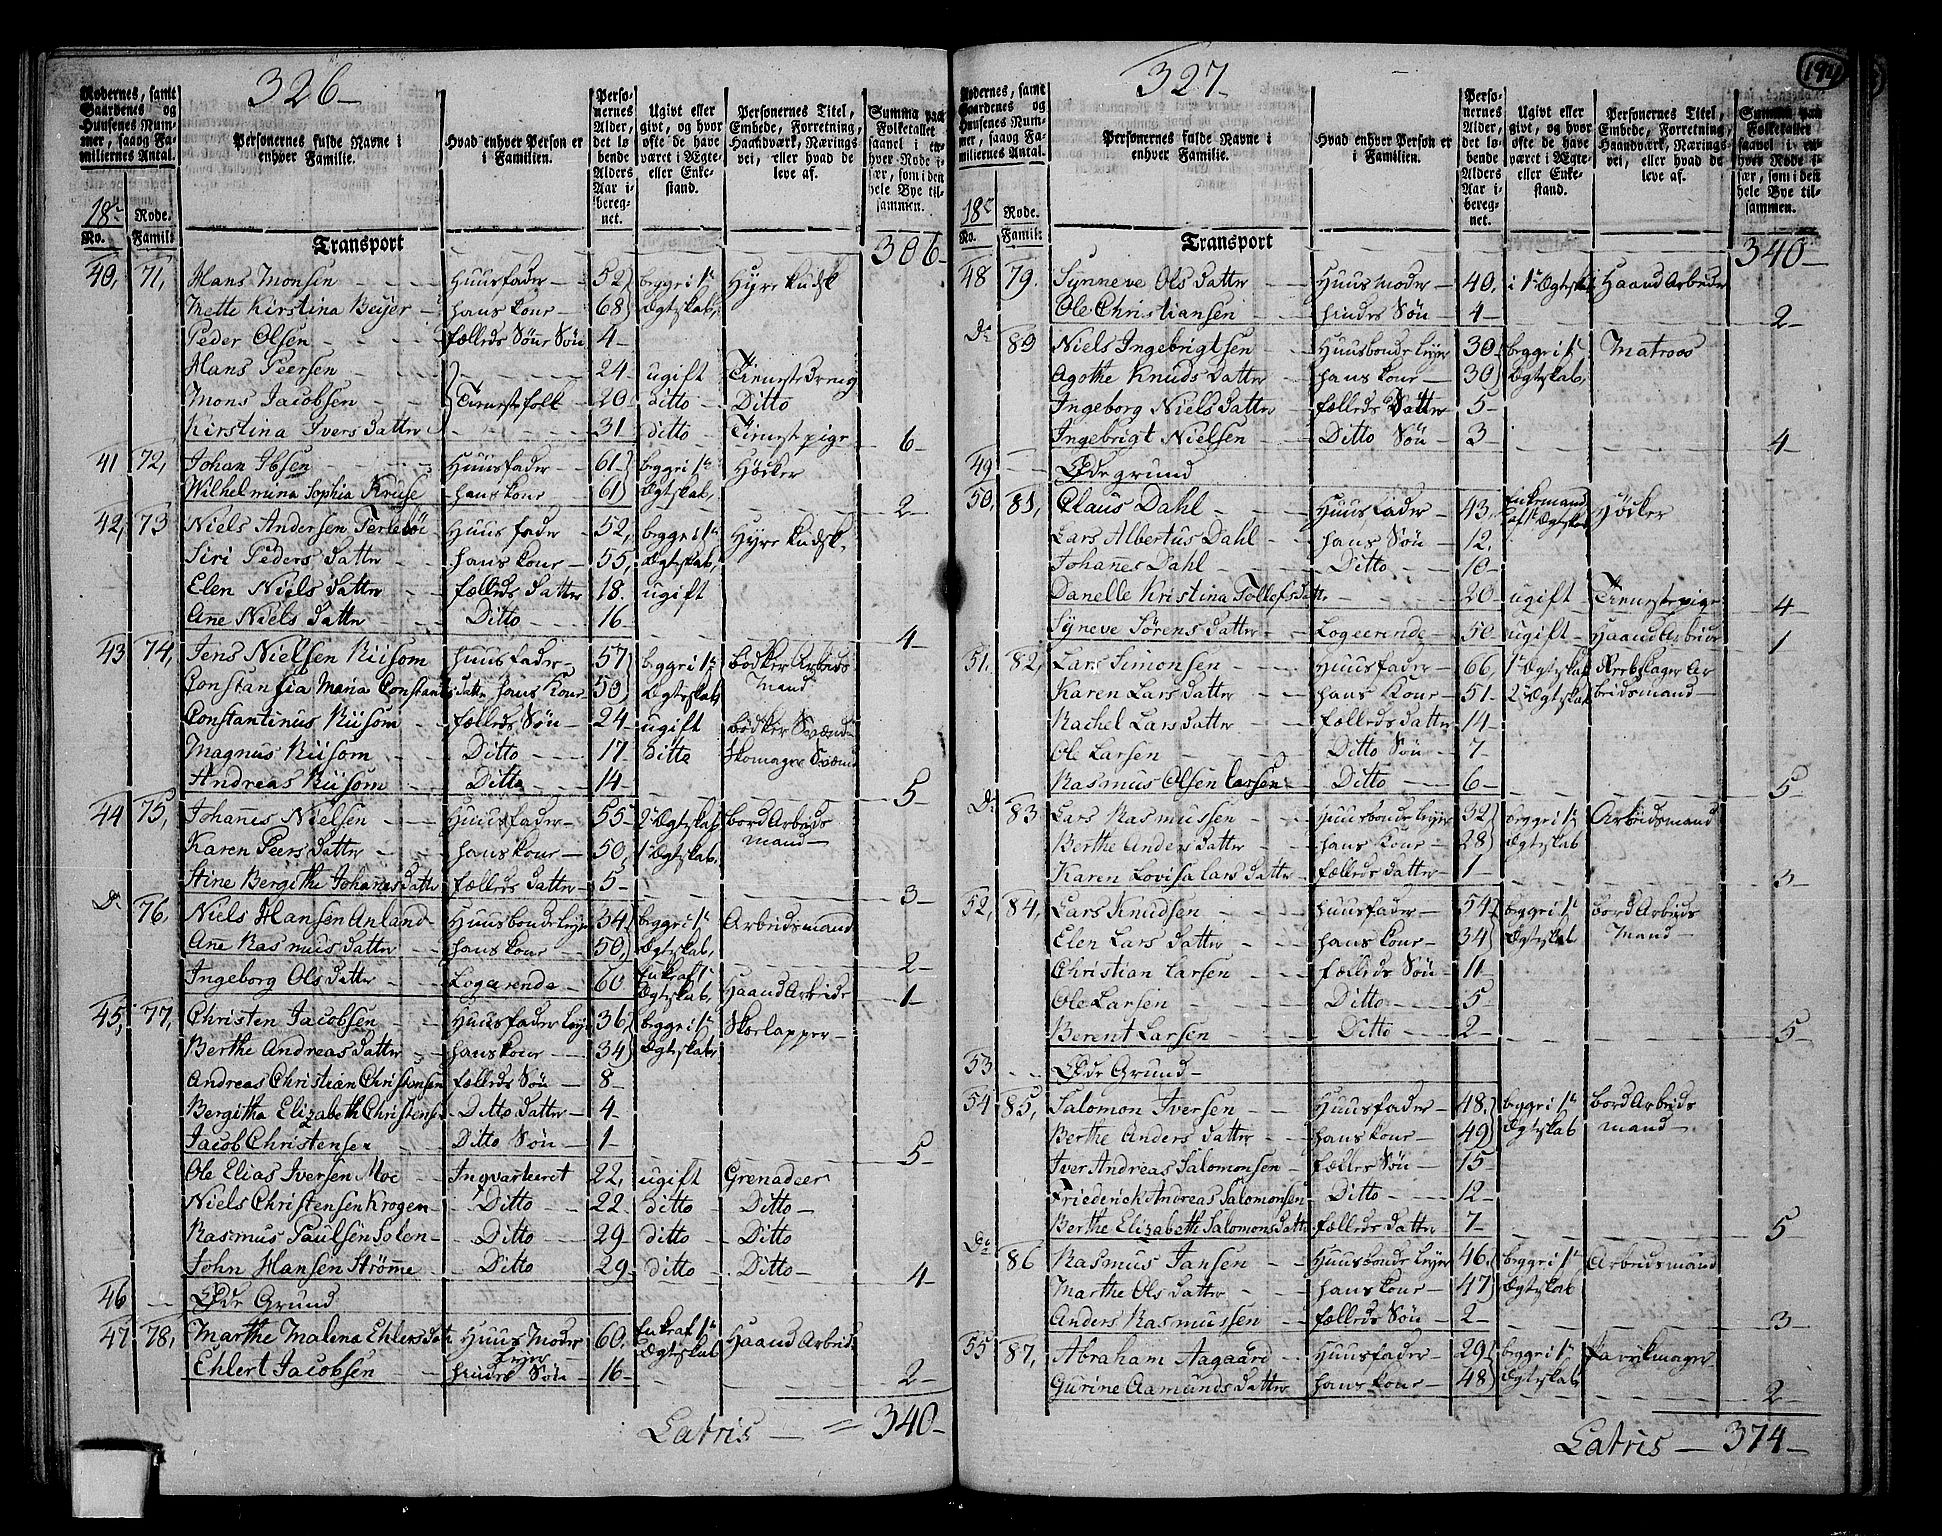 326-
Rodernes, samt Gaardenes og Huusenes Nummer, saavog Familiernes Antal.
Personernes fulde Navne i enhver Familie.
Hvad enhver Person er i Familien.
Personernes Alder, det løbende Alders Aar iberegnet.
Ugivt eller givt, og hvor ofte de have været i Ægte- eller Enkestand.
Personernes Titel, Embede, Forretning, Haandværk, Næringsvei, eller hvad de leve af.
Summa paa Folketallet saavel i enhver Rode især, som i den hele Bye tilsammen.
18de Rode.
No. Famili:
Transport 306-
40, 71, Hans Monsen Huusfader 52 begge i 1te Hyrekudsk
Mette Kirstina Beijer hans kone 68 Ægteskab,
Peder Olsen fælleds Søns Søn 4-
Hans Peersen 24 ugift Tienestedreng
Mons Jacobsen Tienestefolk 20 ditto Ditto
Kirstina Ivers datter 31 ditto Tienestepige 6-
41 72, Johan Ibsen Huusfader 61 begge i 1te Høcker
Wilhelmina Sophia Kruse hans kone 61 Ægteskab, 2-
42, 73 Niels Andersen Huusfader 52, begge i 1te Hyrekudsk
Siri Peders datter hans kone 55, Ægteskab,
Elen Niels datter fælleds datter 18. ugift
Ane Niels datter Ditto 16- 4-
43 74, Jens Nielsen Riisom Huusfader 57 begge i 1te Bödker Arbeids
Constantia Maria Constantins datter hans Kone 50 Ægteskab Mand
Constantinus Riisom fælleds Søn 24- ugift Bödker Svænd
Magnus Riisom Ditto 17- ditto Skomager Svænd
Andreas Riisom Ditto 14- 5-
44 75, Johanes Nielsen Huusfader 55- 2 Ægteskab Bord Arbeids
Karen Peers datter hans kone 50, 1te Ægteskab, mand
Stine Bergithe Johanes datter fælleds datter 5- 3-
Do 76, Niels Hansen Anland Huusbonde leyer 34 begge i 1te Arbeidsmand
Ane Rasmus datter hans kone 50, Ægteskab, 2-
Ingeborg Ols datter Logerende 60 Enke af 1te Ægteskab, Haand Arbeide 1-
45, 77, Christen Jacobsen Huusfader leyer 36, begge i 1te Skoelapper
Berthe Andreas datter hans kone 34 Ægteskab
Andreas Christian Christensen fælleds Søn 8-
Bergitha Elizabeth Christens Ditto datter 4-
Jacob Christensen Ditto Søn 1- 5-
Ole Elias Iversen Moe Inqvarteret 22, ugift Grenadeer
Niels Christensen Krogen Ditto 22- ditto Ditto
Rasmus Paulsen Solen Ditto 29 ditto Ditto
John Hansen Strømme Ditto 29- ditto Ditto 4-
46 Øde Grund
47 78, Marthe Malena Ehlers dat Huus Moder leyer 60, Enke af 1te Ægteskab Haand Arbeid
Ehlert Jacobsen hindes Søn 16- 2-
Latris = 340-
327-
194
Rodernes, samt Gaardenes og Huusenes Nummer, saavog Familiernes Antal.
Personernes fulde Navne i enhver Familie.
Hvad enhver Person er i Familien.
Personernes Alder, det løbende Alders Aar iberegnet.
Ugivt eller givt, og hvor ofte de have været i Ægte- eller Enkestand.
Personernes Titel, Embede, Forretning, Haandværk, Næringsvei, eller hvad de leve af.
Summa paa Folketallet saavel i enhver Rode især, som i den hele Bye tilsammen.
18de Rode.
No. Famili:
Transport 340-
48 79. Synneve Ols datter Huusmoder 40, i 1te Ægteskab Haand Arbeide
Ole Christiansen hindes Søn 4- 2-
Do 80 Niels Ingebrigtsen Huusbonde leyer 30 begge i 1te Matroos
Agothe Knuds datter hans kone 30 Ægteskab,
Ingeborg Niels datter fælleds datter 5-
Ingebrigt Nielsen Ditto Søn 3- 4-
49 Øde grund
50, 81, Claus Dahl Huusfader 43- Enkemand af 1te Ægteskab Höcker
Lars Albertus Dahl hans Søn 12,
Johannes Dahl Ditto 10-
Danelle Kristina Tollefs datter 20 ugift Tienestepige 4-
Syneve Sörens datter Logeerende 50 ugift Haand Arbeide 1
51. 82, Lars Simonsen Huusfader 66, 1te Ægteskab Reebslager Ar
Karen Lars datter hans Kone 51- 2 Ægteskab beidsmand
Rachel Lars datter fælleds datter 14-
Ole Larsen Ditto Søn 7-
Rasmus Olsen Larsen Ditto 6- 5-
Do 83 Lars Rasmussen Huusbonde leyer 32 begge i 1te Arbeidsmand
Berthe Anders datter hans Kone 28 Ægteskab
Karen Lovisa Lars datter fælleds datter 1- 3-
52, 84, Lars Knudsen Huusfader 54 begge i 1te Bord Arbeids
Elen Lars datter hans kone 34 Ægteskab Mand
Christian Larsen fælleds Søn 11
Ole Larsen Ditto 5-
Berent Larsen Ditto 2- 5-
53 Øde Grund
54 85, Salomon Iversen Huusfader 48, begge i 1te Bord Arbeids
Berthe Anders datter hans kone 42 Ægteskab mand
Iver Andreas Salomonsen fælles Søn 15-
Friederich Andreas Salomonsen Ditto 12-
Berthe Elizabeth Salomons datter fælleds datter 7- 5-
Do 86 Rasmus Jansen Huusbonde leyer 46, begge i 1te Arbeidsmand
Marthe Ols datter hans kone 47 Ægteskab
Anders Rasmussen fælleds Søn 2- 3-
55 87, Abraham Aagaard Huusfader 29 begge i 1te
Gurine Aamunds datter hans kone 48 Ægteskab 2-
Latris 374-